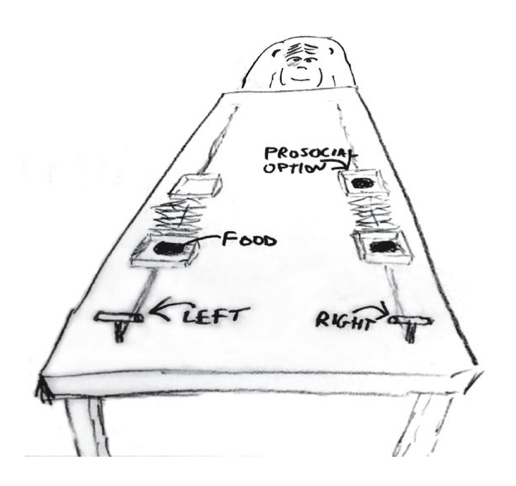 PROSOCIAL
OPTION
FOOD
LEFT
RIGHT